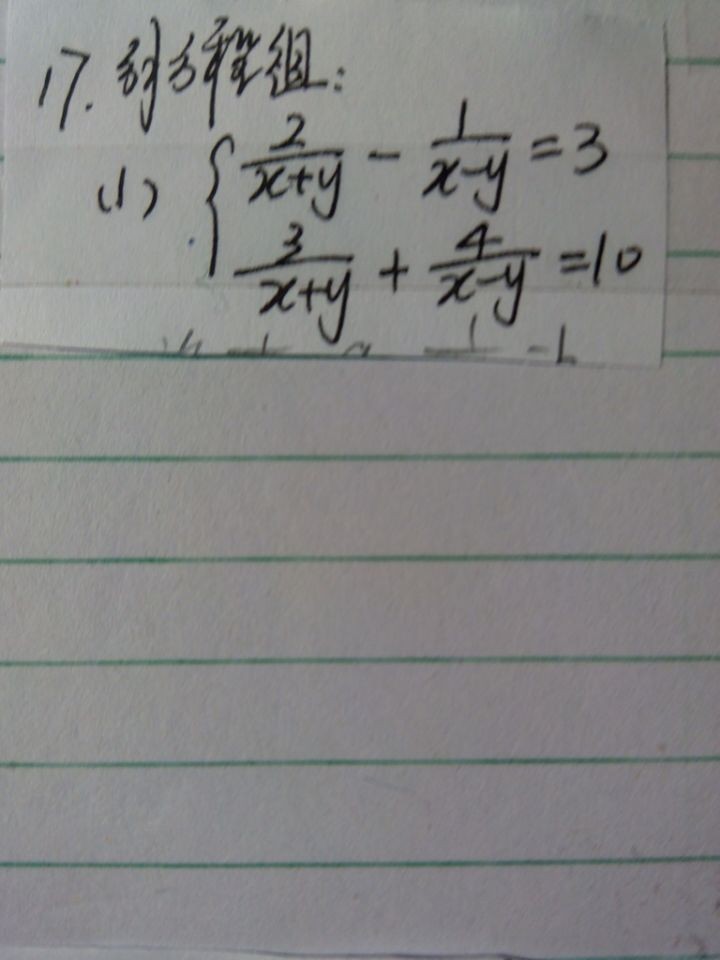 17. 解方程组:
(1) { 2/(x+y) - 1/(x-y) = 3
3/(x+y) + 4/(x-y) = 10